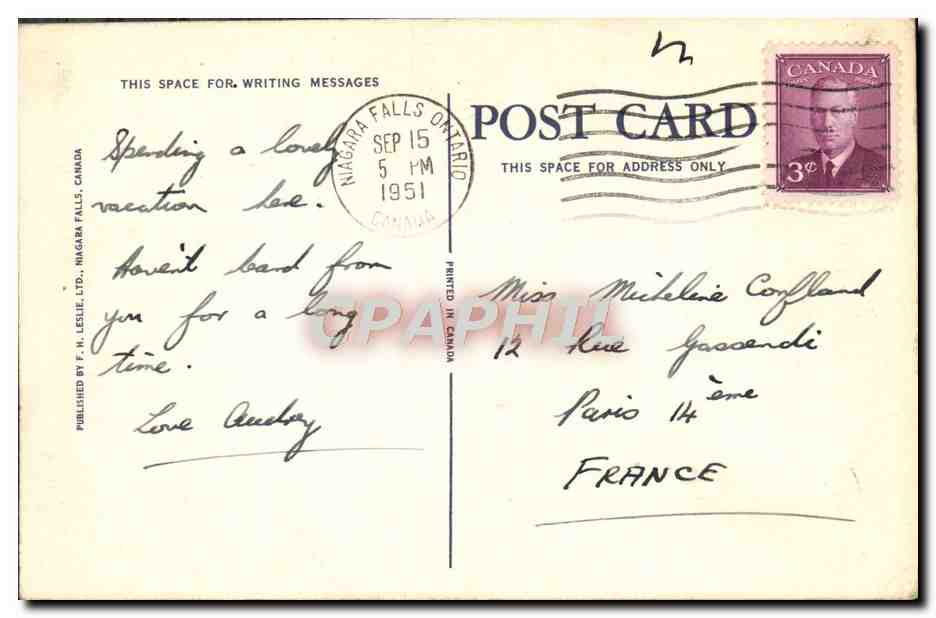 THIS SPACE FOR WRITING MESSAGES
Spending a lovely
vacation here.
Haven't heard from
you for a long
time.
Love Audrey
PUBLISHED BY F. H. LESLIE, LTD., NIAGARA FALLS, CANADA
NIAGARA FALLS ONTARIO
SEP 15
5 PM
1951
CANADA
PRINTED IN CANADA
POST CARD
THIS SPACE FOR ADDRESS ONLY
CANADA
3¢
Miss Micheline Confland
12 Rue Gassendi
Paris 14ème
FRANCE
CPAPHIL